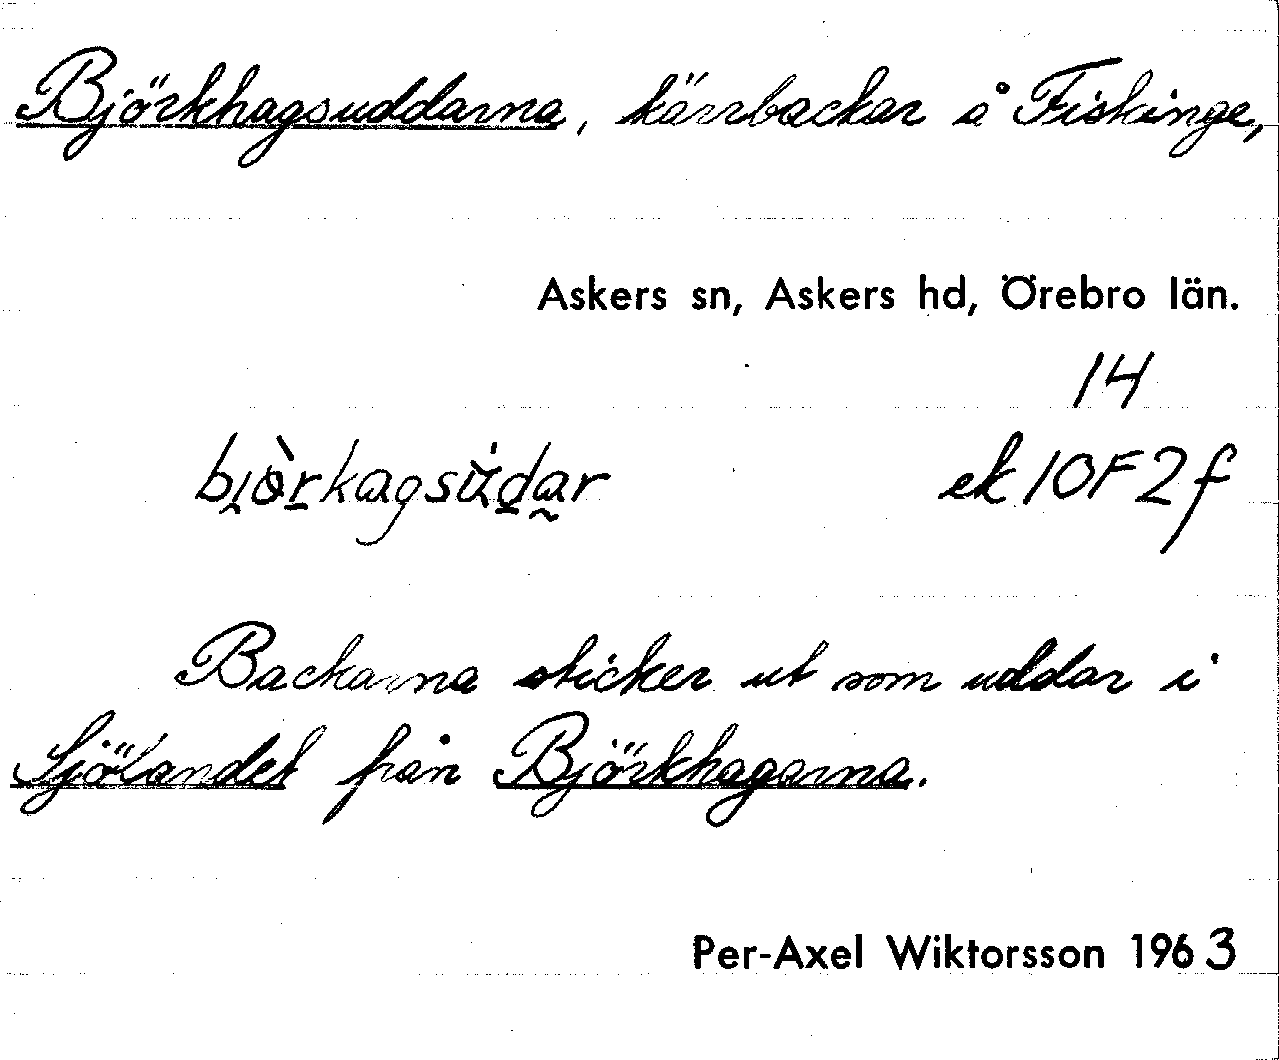 Björkhagsuddarna, kärrbackar å Fiskinge,
Askers sn, Askers hd, Örebro län.
14
bi̯òrkagsùdar ek 10F2f
Backarna sticker ut som uddar i
Sjölandet från Björkhagarna.
Per-Axel Wiktorsson 1963